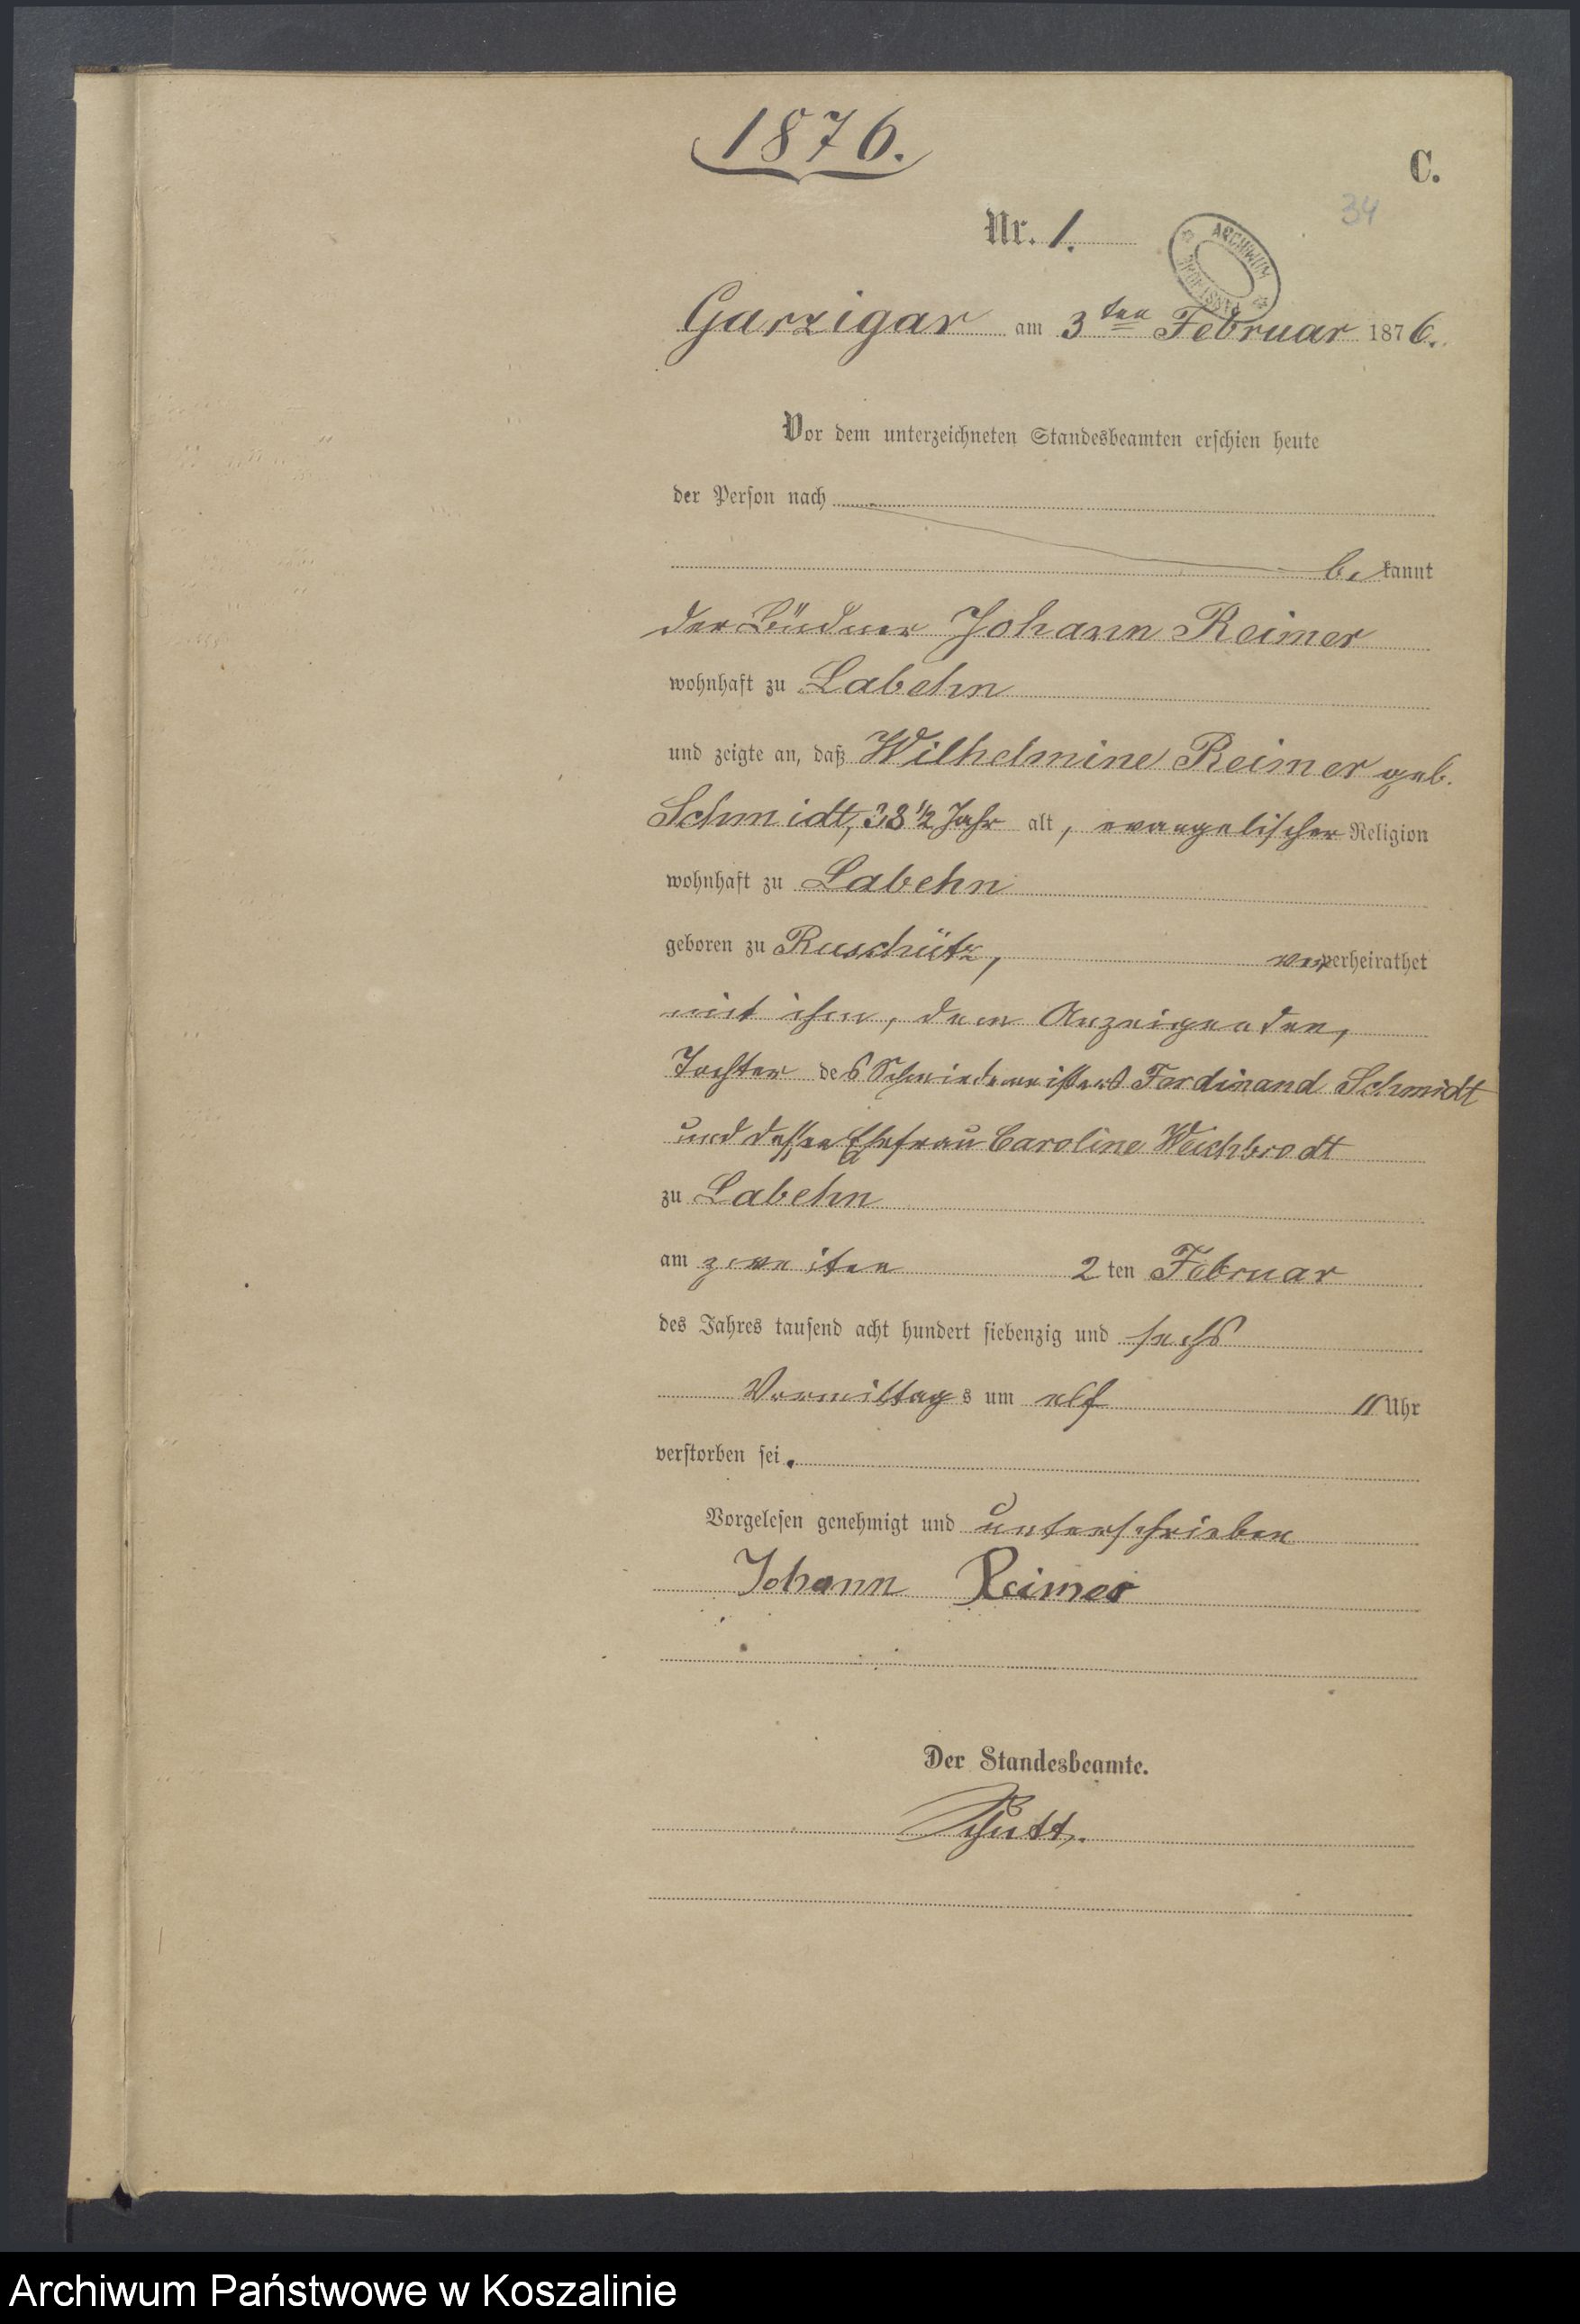 1876.
C.
34
Nr. 1.
ARCHIWUM
Garzigar am 3ten Februar 1876.
Vor dem unterzeichneten Standesbeamten erschien heute
der Person nach
bekannt
der Büdner Johann Reimer
wohnhaft zu Labehn
und zeigte an, daß Wilhelmine Reimer geb.
Schmidt, 38 1/2 Jahr alt, evangelischer Religion
wohnhaft zu Labehn
geboren zu Ruschütz, verheirathet
mit ihm, dem Anzeigenden,
Tochter des Schmiedemeisters Ferdinand Schmidt
und dessen Ehefrau Caroline Weichbrodt
zu Labehn
am zweiten 2ten Februar
des Jahres tausend acht hundert siebenzig und sechs
Vormittags um elf 11 Uhr
verstorben sei.
Vorgelesen genehmigt und unterschrieben
Johann Reimer
Der Standesbeamte.
Schutt.
Archiwum Państwowe w Koszalinie